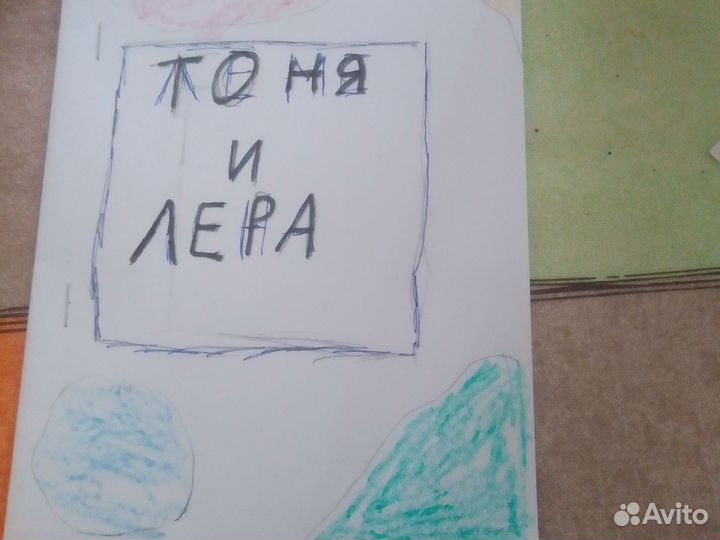 ТОНЯ
И
ЛЕРА
Avito